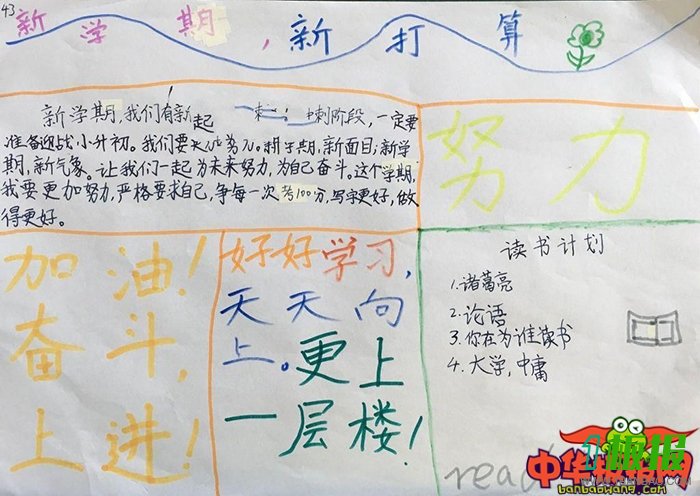 43
新学期,新打算
新学期,我们有新起 冲刺阶段,一定要
准备迎战小升初。我们要 努力。新学期,新面目;新学
期,新气象。让我们一起为未来努力,为自己奋斗。这个学期,
我要更加努力,严格要求自己,争每一次考100分,写字更好,做
得更好。
努力
加油!
奋斗,
上进!
好好学习,
天天向
上。更上
一层楼!
读书计划
1.诸葛亮
2.论语
3.你在为谁读书
4.大学,中庸
read
中华报
banbaowang.com